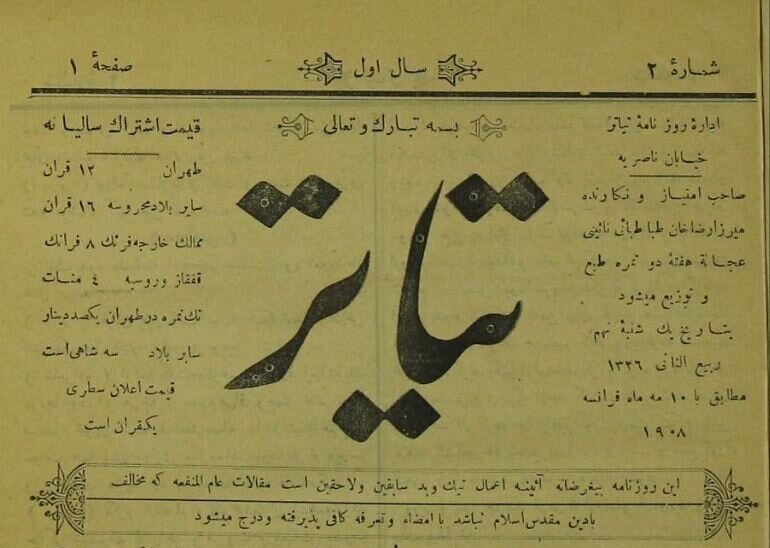 شمارهٔ ۲
سال اول
صفحهٔ ۱
ادارهٔ روزنامهٔ تیاتر
خیابان ناصریه
صاحب امتیاز و نکارنده
میرزا رضاخان طباطبائی نائینی
عجالة هفتهٔ دو نمره طبع
و توزیع میشود
بتاریخ یك شنبهٔ نهم
ربیع الثانی ۱۳۲۶
مطابق با ۱۰ مه ماه فرانسه
۱۹۰۸
بسمه تبارك و تعالی
تیاتر
قیمت اشتراك سالیانه
طهران ۱۲ قران
سایر بلاد محروسه ۱۶ قران
ممالك خارجه فرنك ۸ فرانك
قفقاز و روسیه ۴ منات
تك نمره در طهران یکصد دینار
سایر بلاد سه شاهی است
قیمت اعلان سطری
یکقران است
این روزنامه بیغرضانه آئینه اعمال نیك و بد سابقین و لاحقین است مقالات عام المنفعه که مخالف
با دین مقدس اسلام نباشد با امضاء و تمرفه کافی پذیرفته و درج میشود